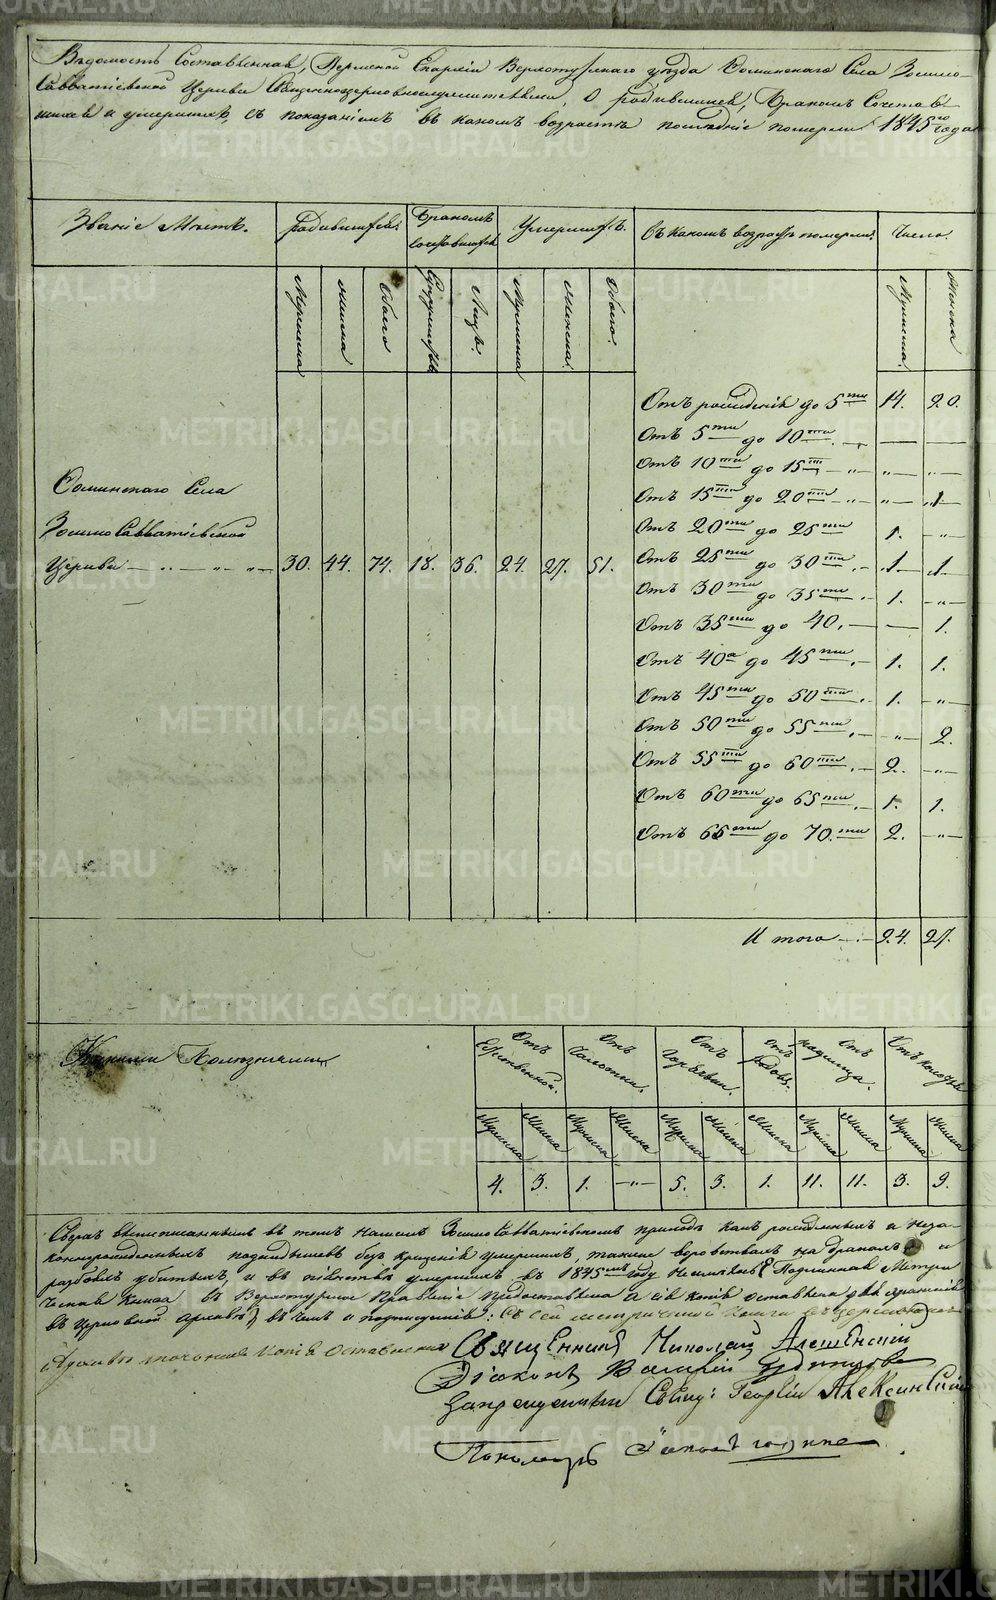 Вѣдомость Составленная, Пермской Епархіи Верхотурскаго уѣзда Коминскаго Села Зосимо-
Савватіевской Церкви Священноцерковнослужителями, О родившихся, Бракомъ Сочетав-
шихся и умершихъ, съ показаніемъ въ какомъ возрастѣ послѣдніе померли 1845го года
Званіе Мѣстъ.
родившихся.
Бракомъ сочетавшихся
Умершихъ.
Въ какомъ возрастѣ померли.
Число.
Мужеска
Женска
Обоего
Супружествъ
Лицъ.
Мужеска
Женска.
Обоего.
Мужеска.
Женска
Отъ рожденія до 5ти 14. 20.
Отъ 5ти до 10ти — —
Отъ 10ти до 15ти „ „
Отъ 15ти до 20ти „ 1.
Отъ 20ти до 25ти 1. „
Отъ 25ти до 30ти 1. 1.
Отъ 30ти до 35ти 1. „
Отъ 35ти до 40. — 1.
Отъ 40а до 45ти 1. 1.
Отъ 45ти до 50ти 1. „
Отъ 50ти до 55ти „ 2.
Отъ 55ти до 60ти 2. „
Отъ 60ти до 65ти 1. 1.
Отъ 65ти до 70ти 2. „
Села
Зосимо Савватіевской
Церкви — „ — „ — „ — 30. 44. 74. 18. 36. 24. 27. 51.
Итого — 24. 27.
Какими болѣзнями
Отъ
Отъ Чахотки.
Отъ Горячки.
Отъ родовъ.
Отъ родимца.
Отъ колотья
Мужеска
Женска
Мужеска
Женска
Мужеска
Женска
Женска
Мужеска
Женска
Мужеска
Женска
4. 3. 1. — 5. 3. 1. 11. 11. 3. 9.
Сверхъ вышеписанныхъ въ томъ нашемъ Зосимо Савватіевскомъ приходѣ какъ рожденныхъ и неза-
коннорожденныхъ подкидышевъ безъ крещенія умершихъ, также
убитыхъ, и въ умершихъ въ 1845мъ году Подлинная Метри-
ческая Книга въ Верхотурское Правленіе представлена А сія копія оставлена для храненія
въ церковной архивѣ, въ чемъ и подписуемся:
точная Копія Оставлена
Священникъ Николай
Діаконъ Василій
Запрещенный Свящ: Георгій
Пономарь
METRIKI.GASO-URAL.RU